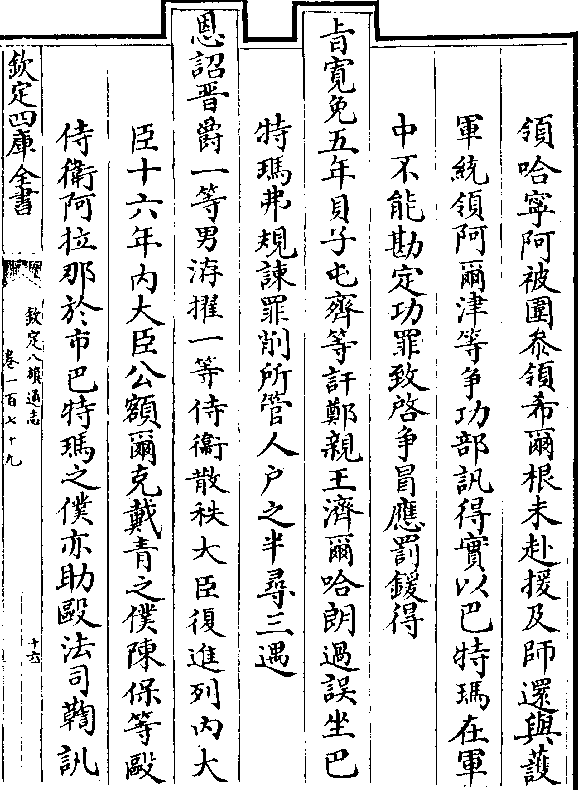 領哈寧阿被圍叅領希爾根未赴援及師還與護
軍統領阿爾津等爭功部訊得實以巴特瑪在軍
中不能勘定功罪致啓爭冒應罰鍰得
旨寛免五年貝子屯齊等訐鄭親王濟爾哈朗過誤坐巴
特瑪弗規諫罪削所管人户之半尋三遇
恩詔晋爵一等男洊擢一等侍衛散秩大臣復進列内大
臣十六年内大臣公額爾克戴青之僕陳保等毆
侍衛阿拉那於市巴特瑪之僕亦助毆法司鞫訊
欽定四庫全書
欽定八旗通志
卷一百七十九
十六